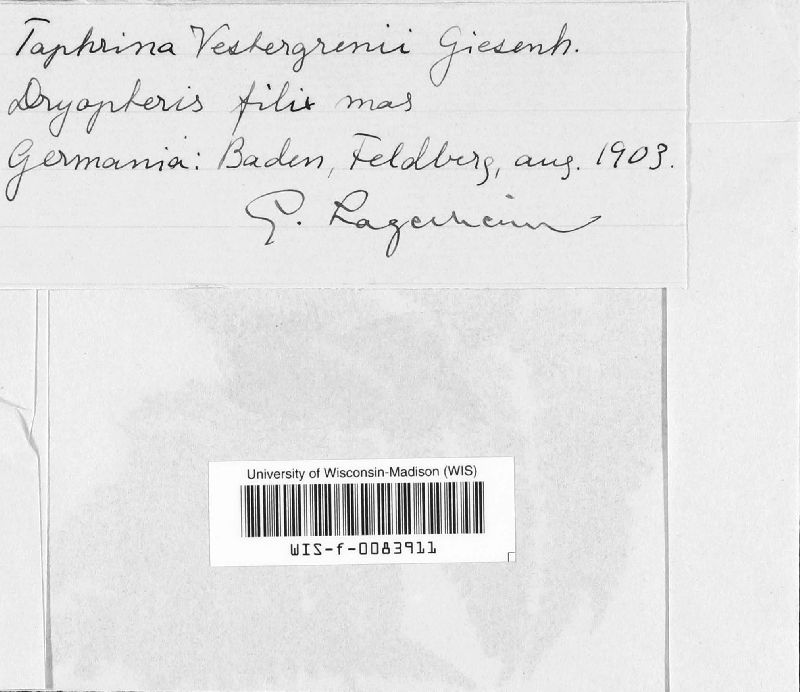 Taphrina Vestergrenii Giesenh.
Dryopteris filix mas
Germania: Baden, Feldberg, aug. 1903.
G. Lagerheim
University of Wisconsin-Madison (WIS)
WIS-f-0083911